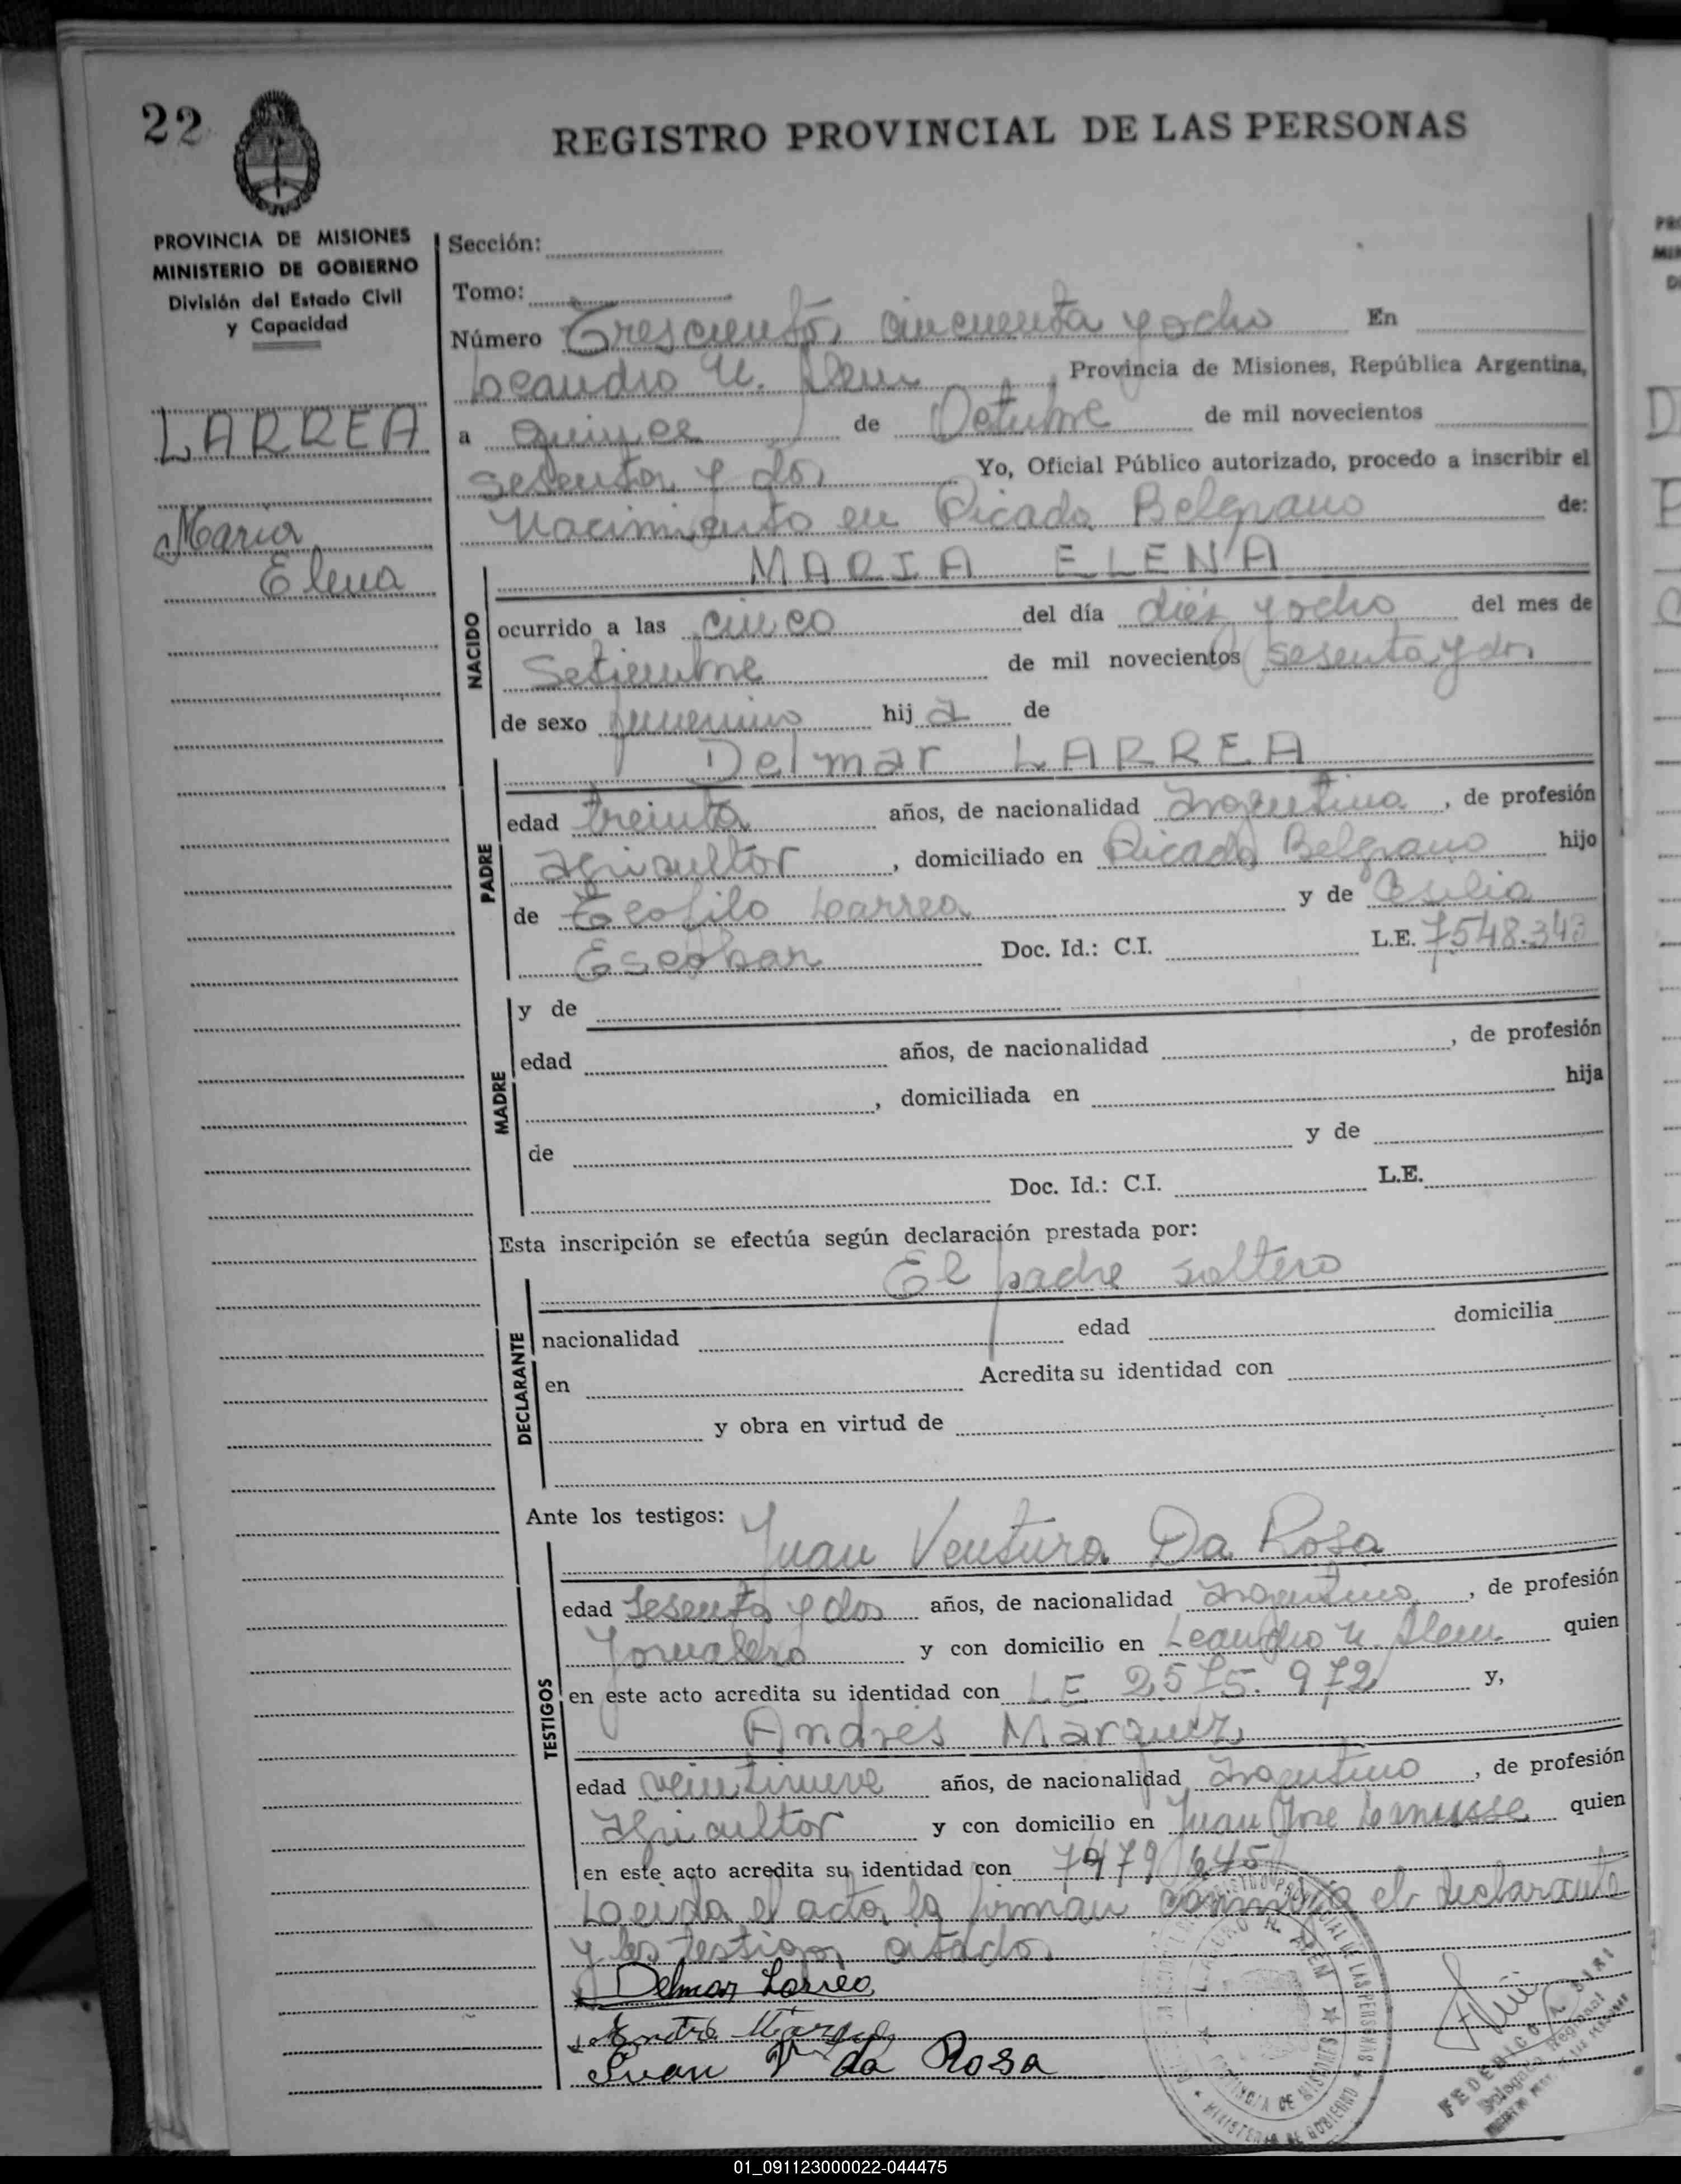 22
REGISTRO PROVINCIAL DE LAS PERSONAS
PROVINCIA DE MISIONES
MINISTERIO DE GOBIERNO
División del Estado Civil
y Capacidad
LARREA
Maria
Elena
Sección:
Tomo:
Número Trescientos cincuenta y ocho En
Leandro N. Alem, Provincia de Misiones, República Argentina,
a quince de Octubre de mil novecientos
sesenta y dos Yo, Oficial Público autorizado, procedo a inscribir el
Nacimiento en Picada Belgrano de:
MARIA ELENA
NACIDO
ocurrido a las cinco del día diés y ocho del mes de
Setiembre de mil novecientos sesenta y dos
de sexo femenino hij a de
Delmar LARREA
PADRE
edad treinta años, de nacionalidad Argentina, de profesión
Agricultor, domiciliado en Picada Belgrano hijo
de Teofilo Larrea y de
Escobar Doc. Id.: C.I. L.E. 7548.343
MADRE
y de
edad años, de nacionalidad , de profesión
, domiciliada en hija
de y de
Doc. Id.: C.I. L.E.
Esta inscripción se efectúa según declaración prestada por:
El padre soltero
DECLARANTE
nacionalidad edad domicilia
en Acredita su identidad con
y obra en virtud de
Ante los testigos:
Juan Ventura Da Rosa
TESTIGOS
edad sesenta y dos años, de nacionalidad Argentino, de profesión
Jornalero y con domicilio en Leandro N. Alem quien
en este acto acredita su identidad con LE 2575.972 y,
Andrés Marquez
edad veintinueve años, de nacionalidad Argentino, de profesión
Agricultor y con domicilio en Juan José Lanusse quien
en este acto acredita su identidad con 7479 645
Leida el acta la firman conmigo el declarante
y los testigos citados
Delmar Larrea
Andrés Marquez
Juan V. da Rosa
REGISTRO PROVINCIAL DE LAS PERSONAS
LEANDRO N. ALEM
PROVINCIA DE MISIONES
MINISTERIO DE GOBIERNO
FEDERICO A.
Delegado Regional
01_091123000022-044475